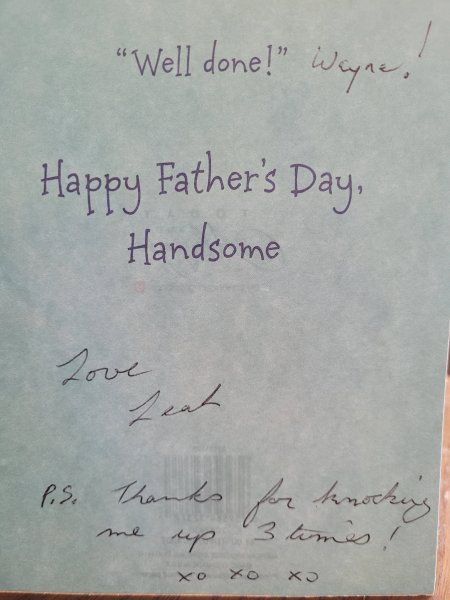 "Well done!" Wayne!
Happy Father's Day,
Handsome
Love
Leah
P.S. Thanks for knocking
me up 3 times!
xo xo xo